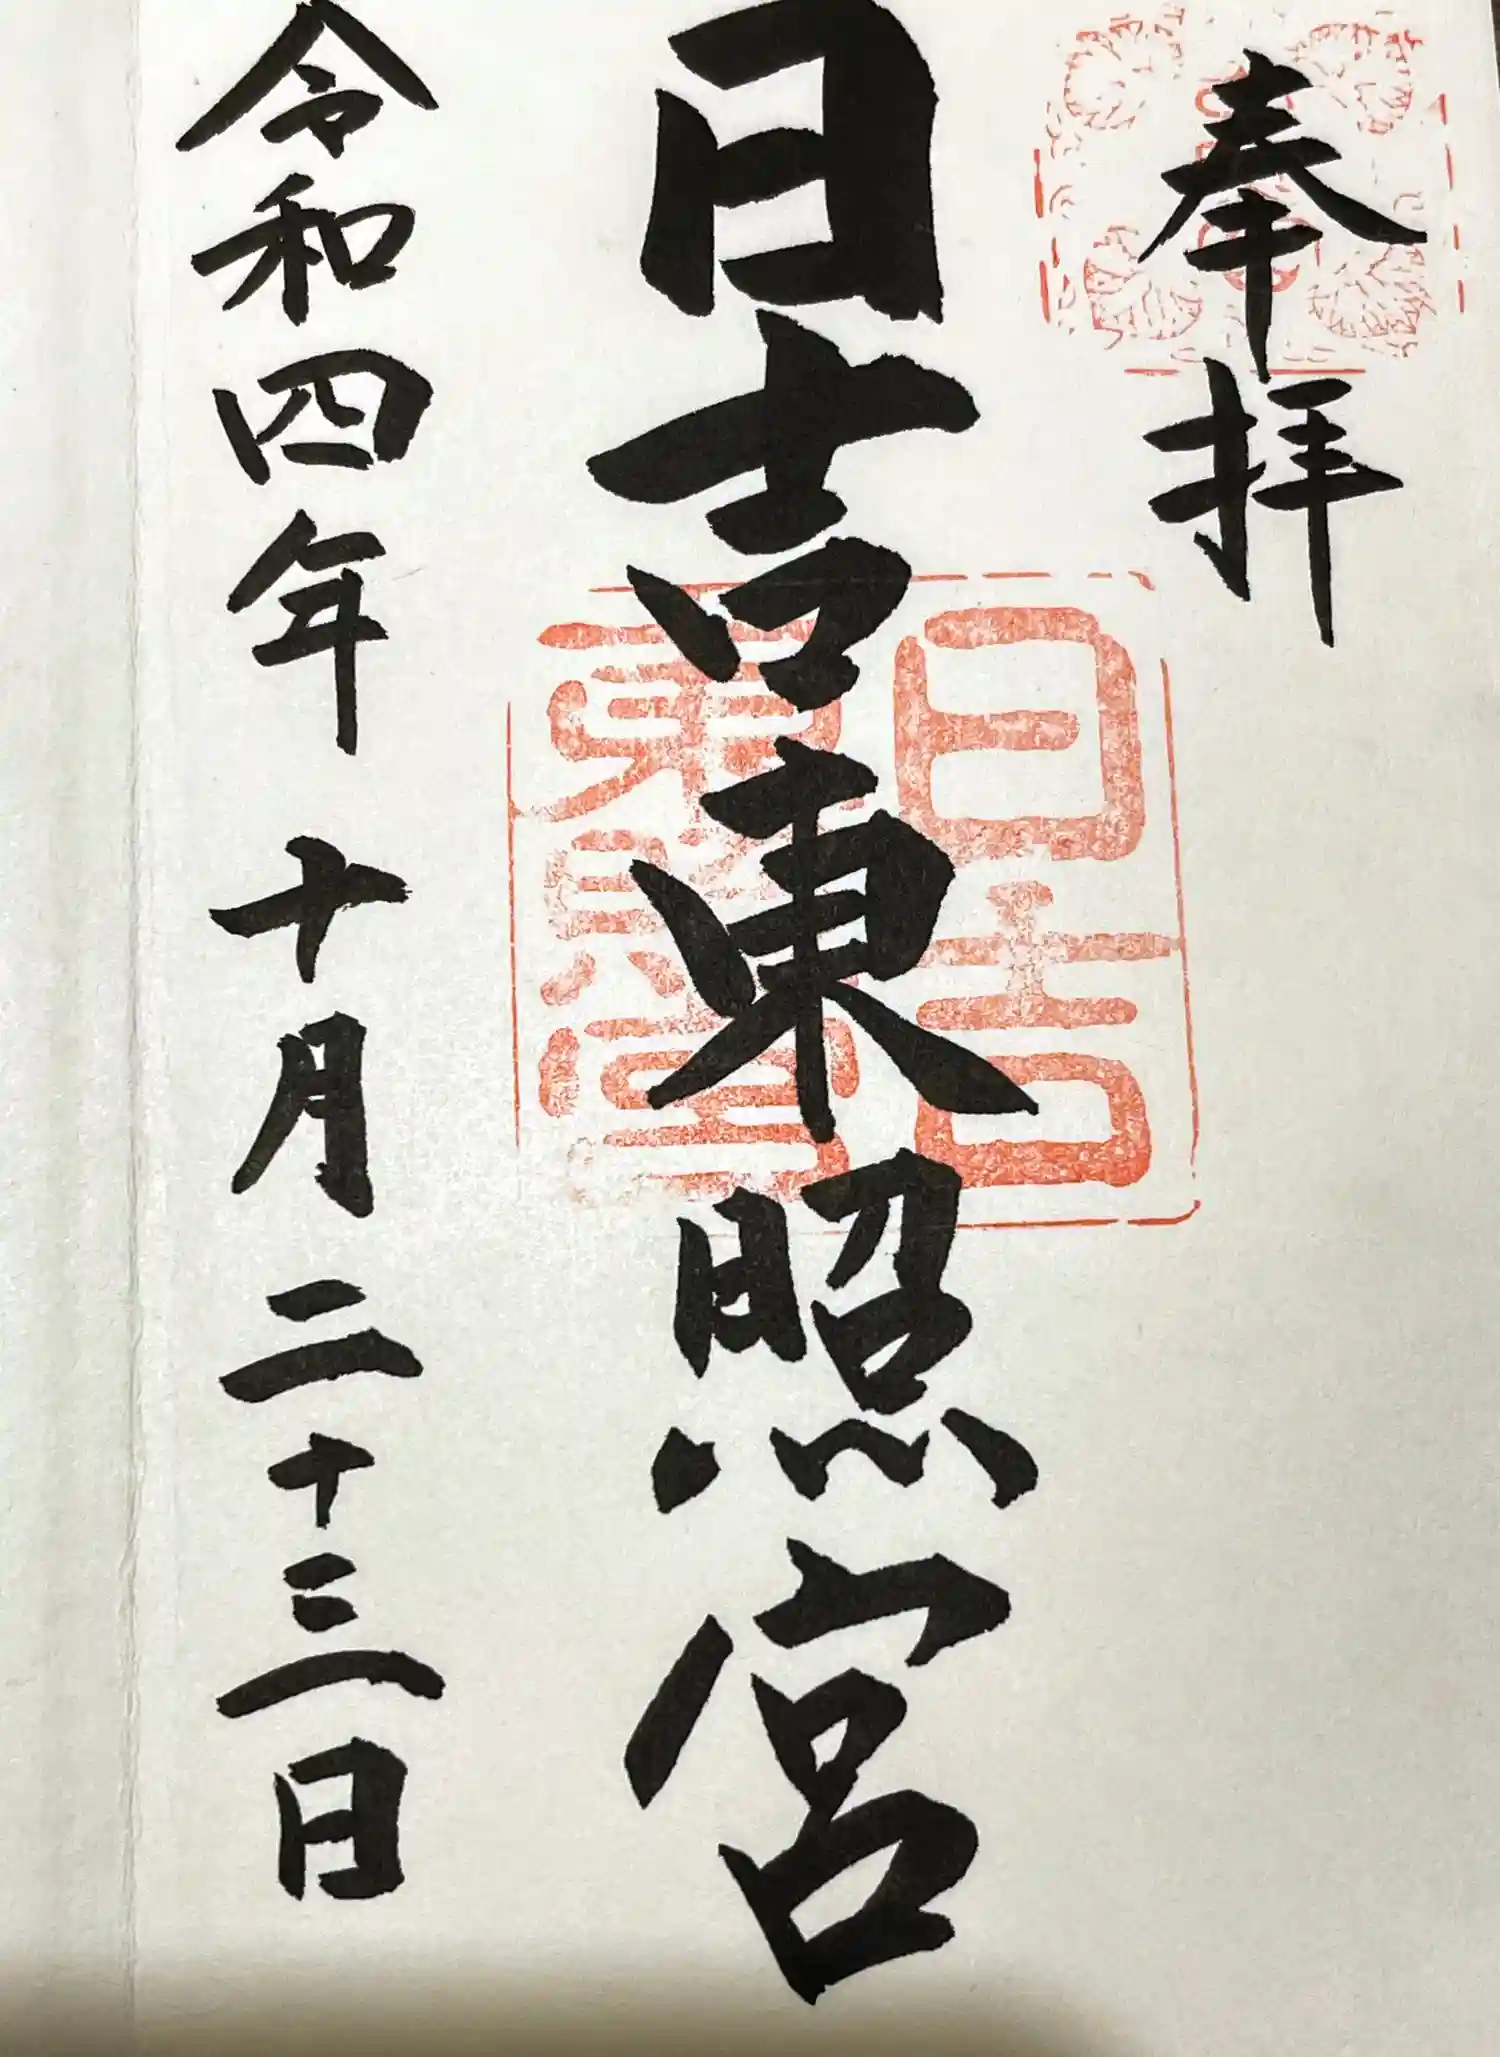 奉拝
日吉東照宮
日吉
東照宮
令和四年 十月二十三日